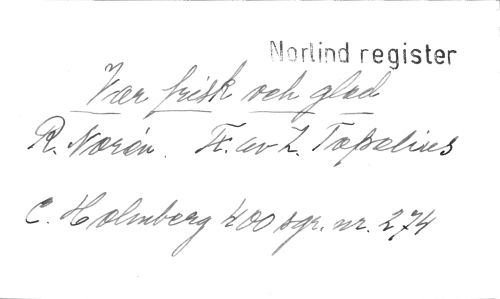 Norlind register
Var frisk och glad
R. Norén. Tx. av Z. Topelius
C. Holmberg 400 sgr. nr. 274